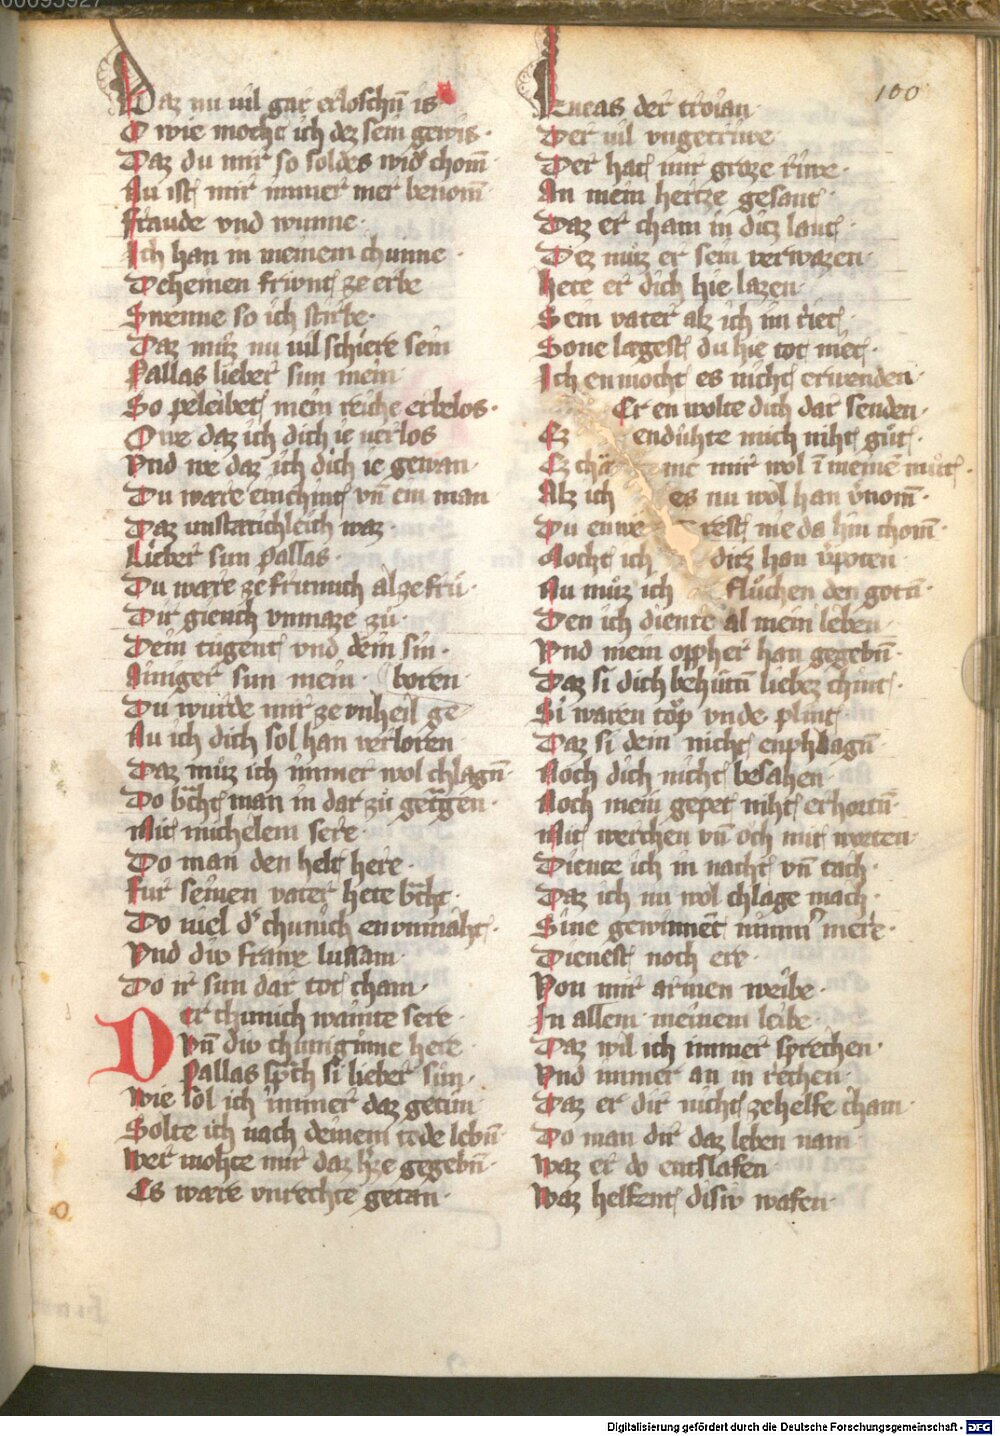 00095927
100
Daz nu vil gar erloschn̄ is
O wie mocht ich dez sein gewis ·
Daz du mir so soldes wid͛ chom̄ ·
Nu ist mir immer mer benom̄ ·
Fraude vnd wunne ·
Ich han in meinem chunne ·
Deheinen frivnt ze erbe
Swenne so ich stirbe ·
Daz muz nu vil schiere sein
Pallas lieber sun mein ·
So peleibet mein reiche erbelos ·
Owe daz ich dich ie verlos
Vnd we daz ich dich ie gewan ·
Du ware ein chint vn̄ ein man
Daz vnstatichleich waz ·
Lieber sun pallas ·
Du ware ze frumich alze fru ·
Dir giench vnmaze zu ·
Dein tugent vnd dein sin ·
Ainiger sun mein · boren
Du wurde mir ze vnheil ge
Nu ich dich sol han verloren
Daz muz ich immer wol chlagn̄ ·
Do bͣcht man in dar zů getragen ·
Mit michelem sere ·
Do man den helt here ·
Fur seinen vater hete bͣcht ·
Do viel d͛ chunich en vnmaht ·
Vnd div frawe lussam
Do ir sun dar tot cham ·
Der chunich wainte sere ·
Vn̄ div chuniginne here ·
Pallas spͣch si lieber sun ·
Wie sol ich immer daz getun ·
Solte ich nach deinem tode lebn̄ ·
Wer mohte mir daz h͛ze gegebn̄ ·
Es ware vnrechte getan ·
Eneas der troian ·
Der vil vngetriwe ·
Der hat mir groze riwe ·
An mein hertze gesant ·
Daz er cham in ditz lant ·
Dez můz er sein verwazen ·
Hete er dich hie lazen ·
Sein vater alz ich im riet ·
Sone lægest du hie tot niet ·
Ich en mocht es nicht erwenden ·
Er en wolte dich dar senden ·
Ez enduhte mich niht gůt ·
Ez chä me mir wol ī meinē můt ·
Alz ich es nu wol han v͛nom̄ ·
Du en we rest nie da hin chom̄ ·
Mocht ich ditz han v͛poten
Nu můz ich flůchen den gotn̄ ·
Den ich diente al mein leben ·
Vnd mein oppher han gegebn̄ ·
Daz si dich behutn̄ liebez chint ·
Si waren tŏp vnde plint
Daz si dein nicht enphlagn̄ ·
Noch dich nicht besahen ·
Noch mein gepet niht erhortn̄ ·
Mit werchen vn̄ och mit worten ·
Diente ich in nacht vn̄ tach ·
Daz ich nu wol chlage mach ·
Sine gewinnet nimm͛ mere ·
Dienest noch ere ·
Von mir armen weibe ·
In allem meinem leibe
Daz wil ich immer sprechen ·
Vnd immer an in rechen ·
Daz er dir nicht zehelfe cham ·
Do man dir daz leben nam
Waz er do entslafen
Waz helfent disiv wafen ·
Digitalisierung gefördert durch die Deutsche Forschungsgemeinschaft - DFG